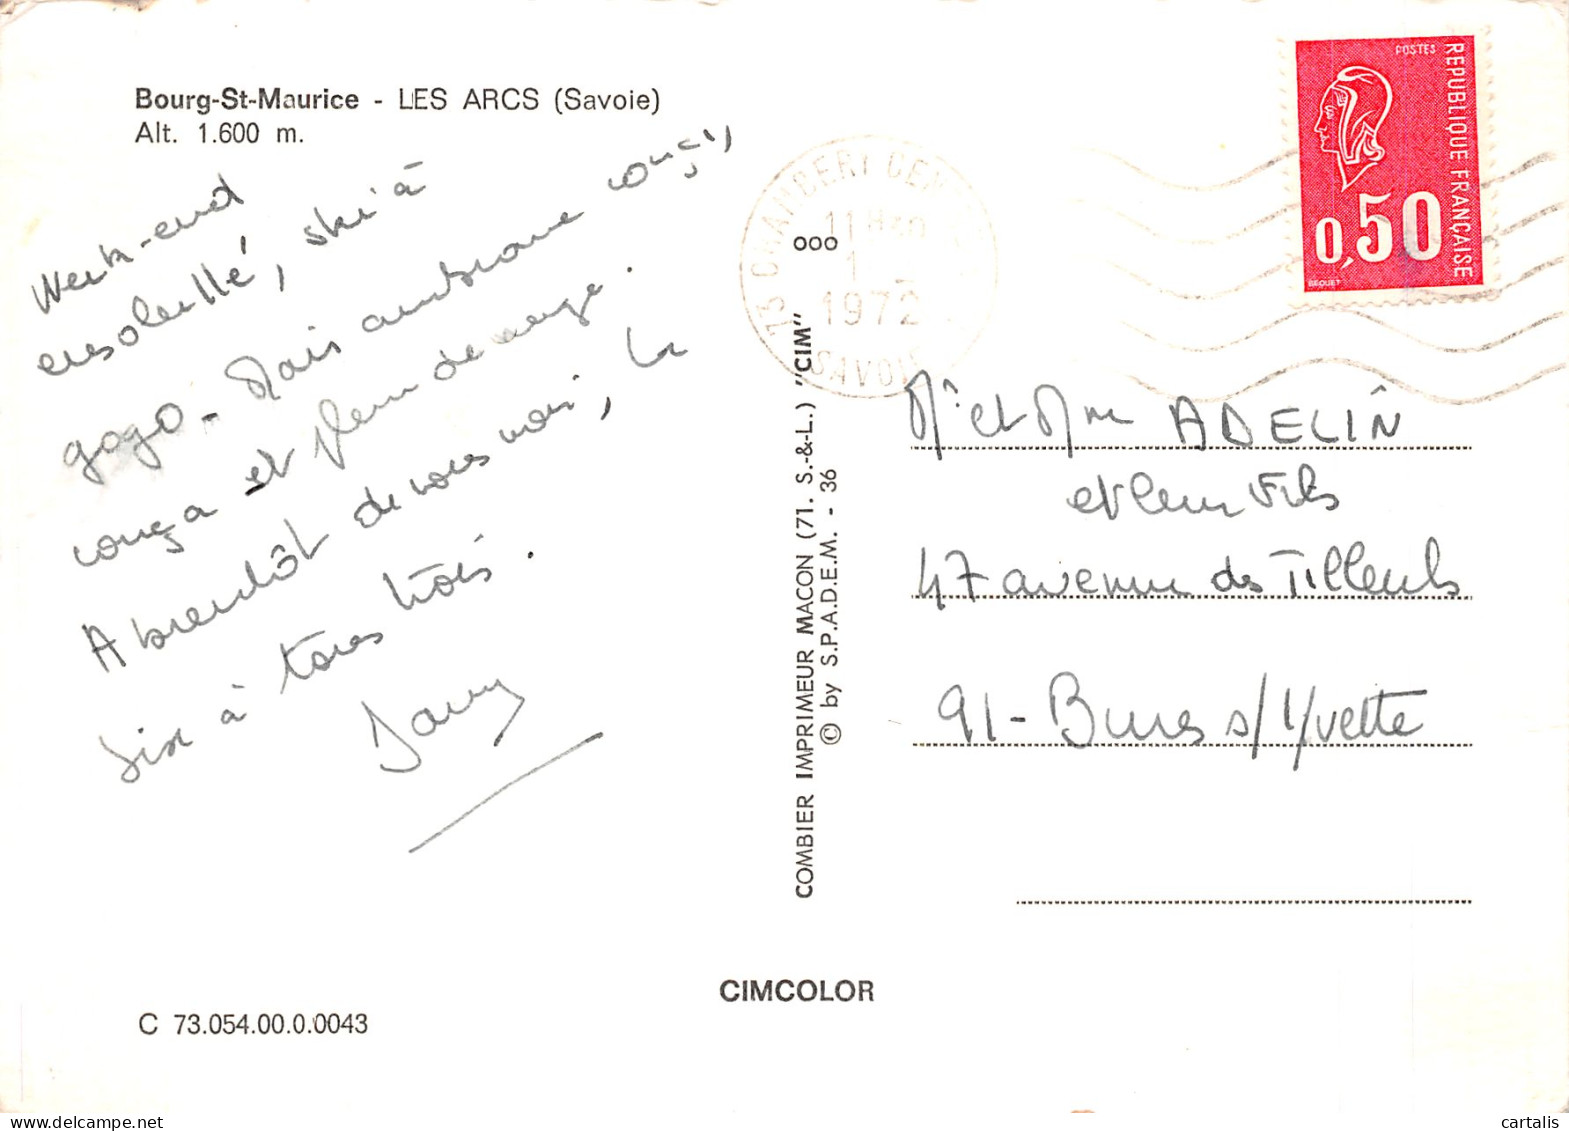 Bourg-St-Maurice - LES ARCS (Savoie)
Alt. 1.600 m.
Week-end
ensoleillé, ski à
gogo - Mais ambiance
et plein de neige.
A bientôt de vous voir, le
dix à tous trois.
Dany
C 73.054.00.0.0043
CIMCOLOR
COMBIER IMPRIMEUR MACON (71. S.-&-L.) "CIM"
© by S.P.A.D.E.M. - 36
ooo
73 CHAMBERY CENTRE
1972
SAVOIE
POSTES
REPUBLIQUE FRANÇAISE
0,50
BEQUET
Mr et Mme ADELIN
et leur Fils
47 avenue des Tilleuls
91 - Bures s/ Yvette
cartalis